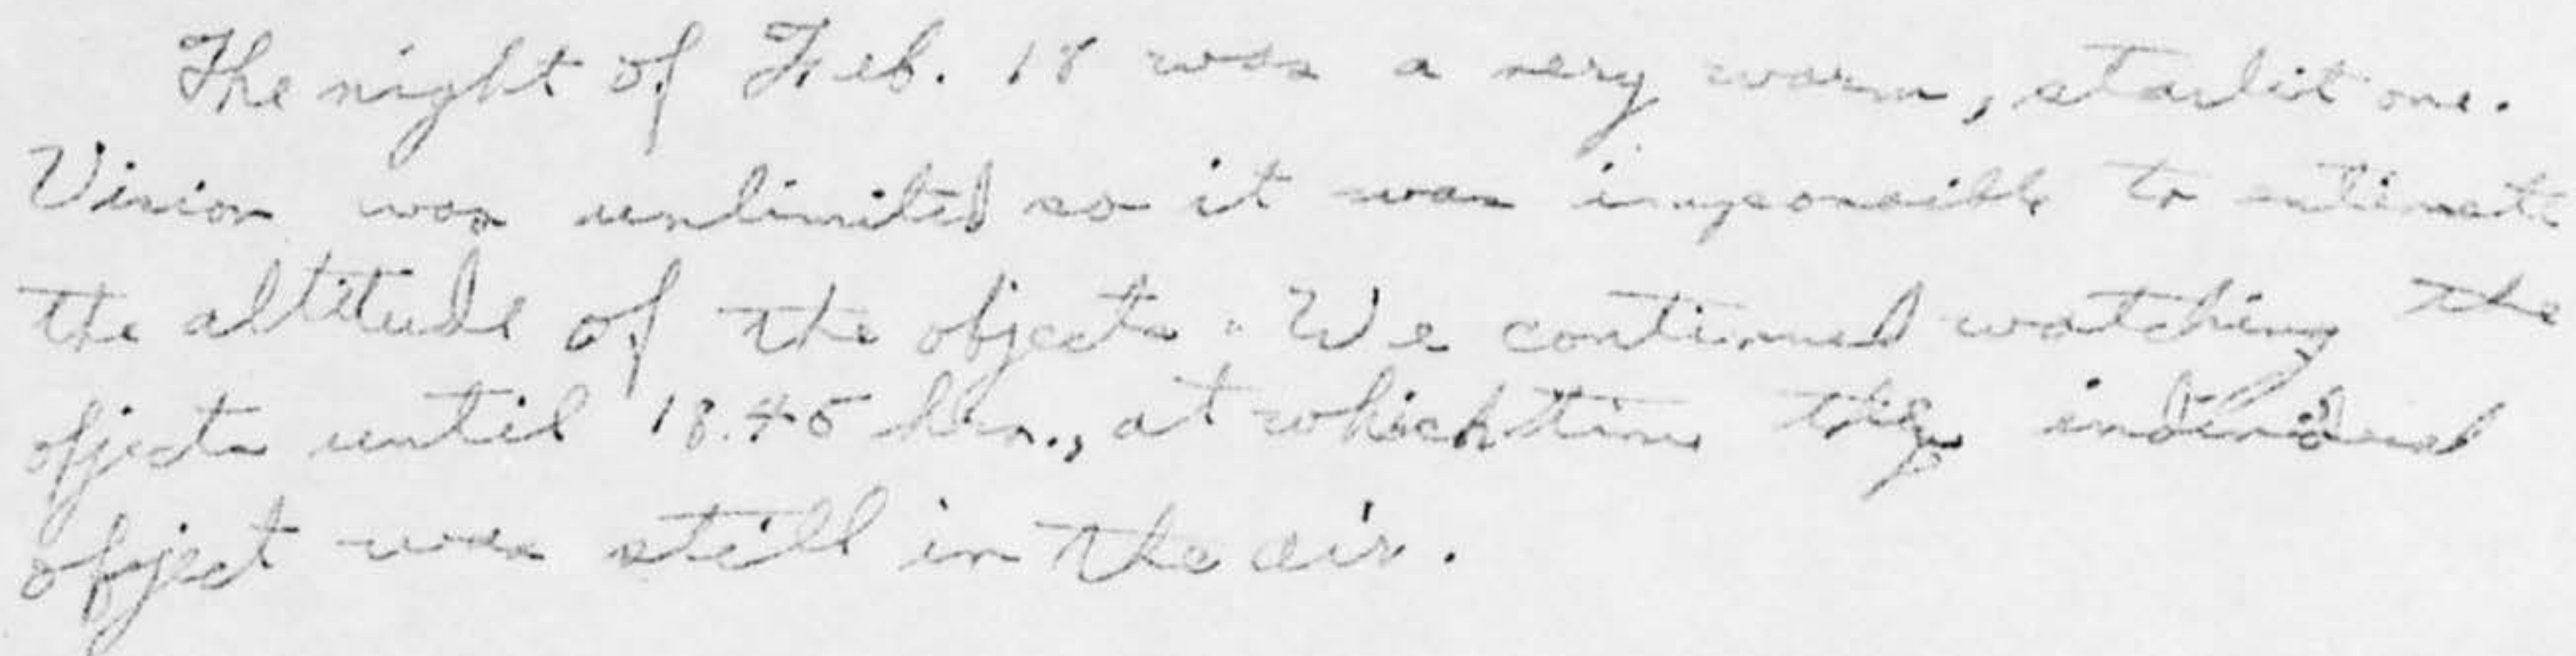 The night of Feb. 18 was a very warm, starlit one.
Vision was unlimited so it was impossible to estimate
the altitude of the objects. We continued watching the
objects until 18.45 hrs., at which time the individual
object was still in the air.